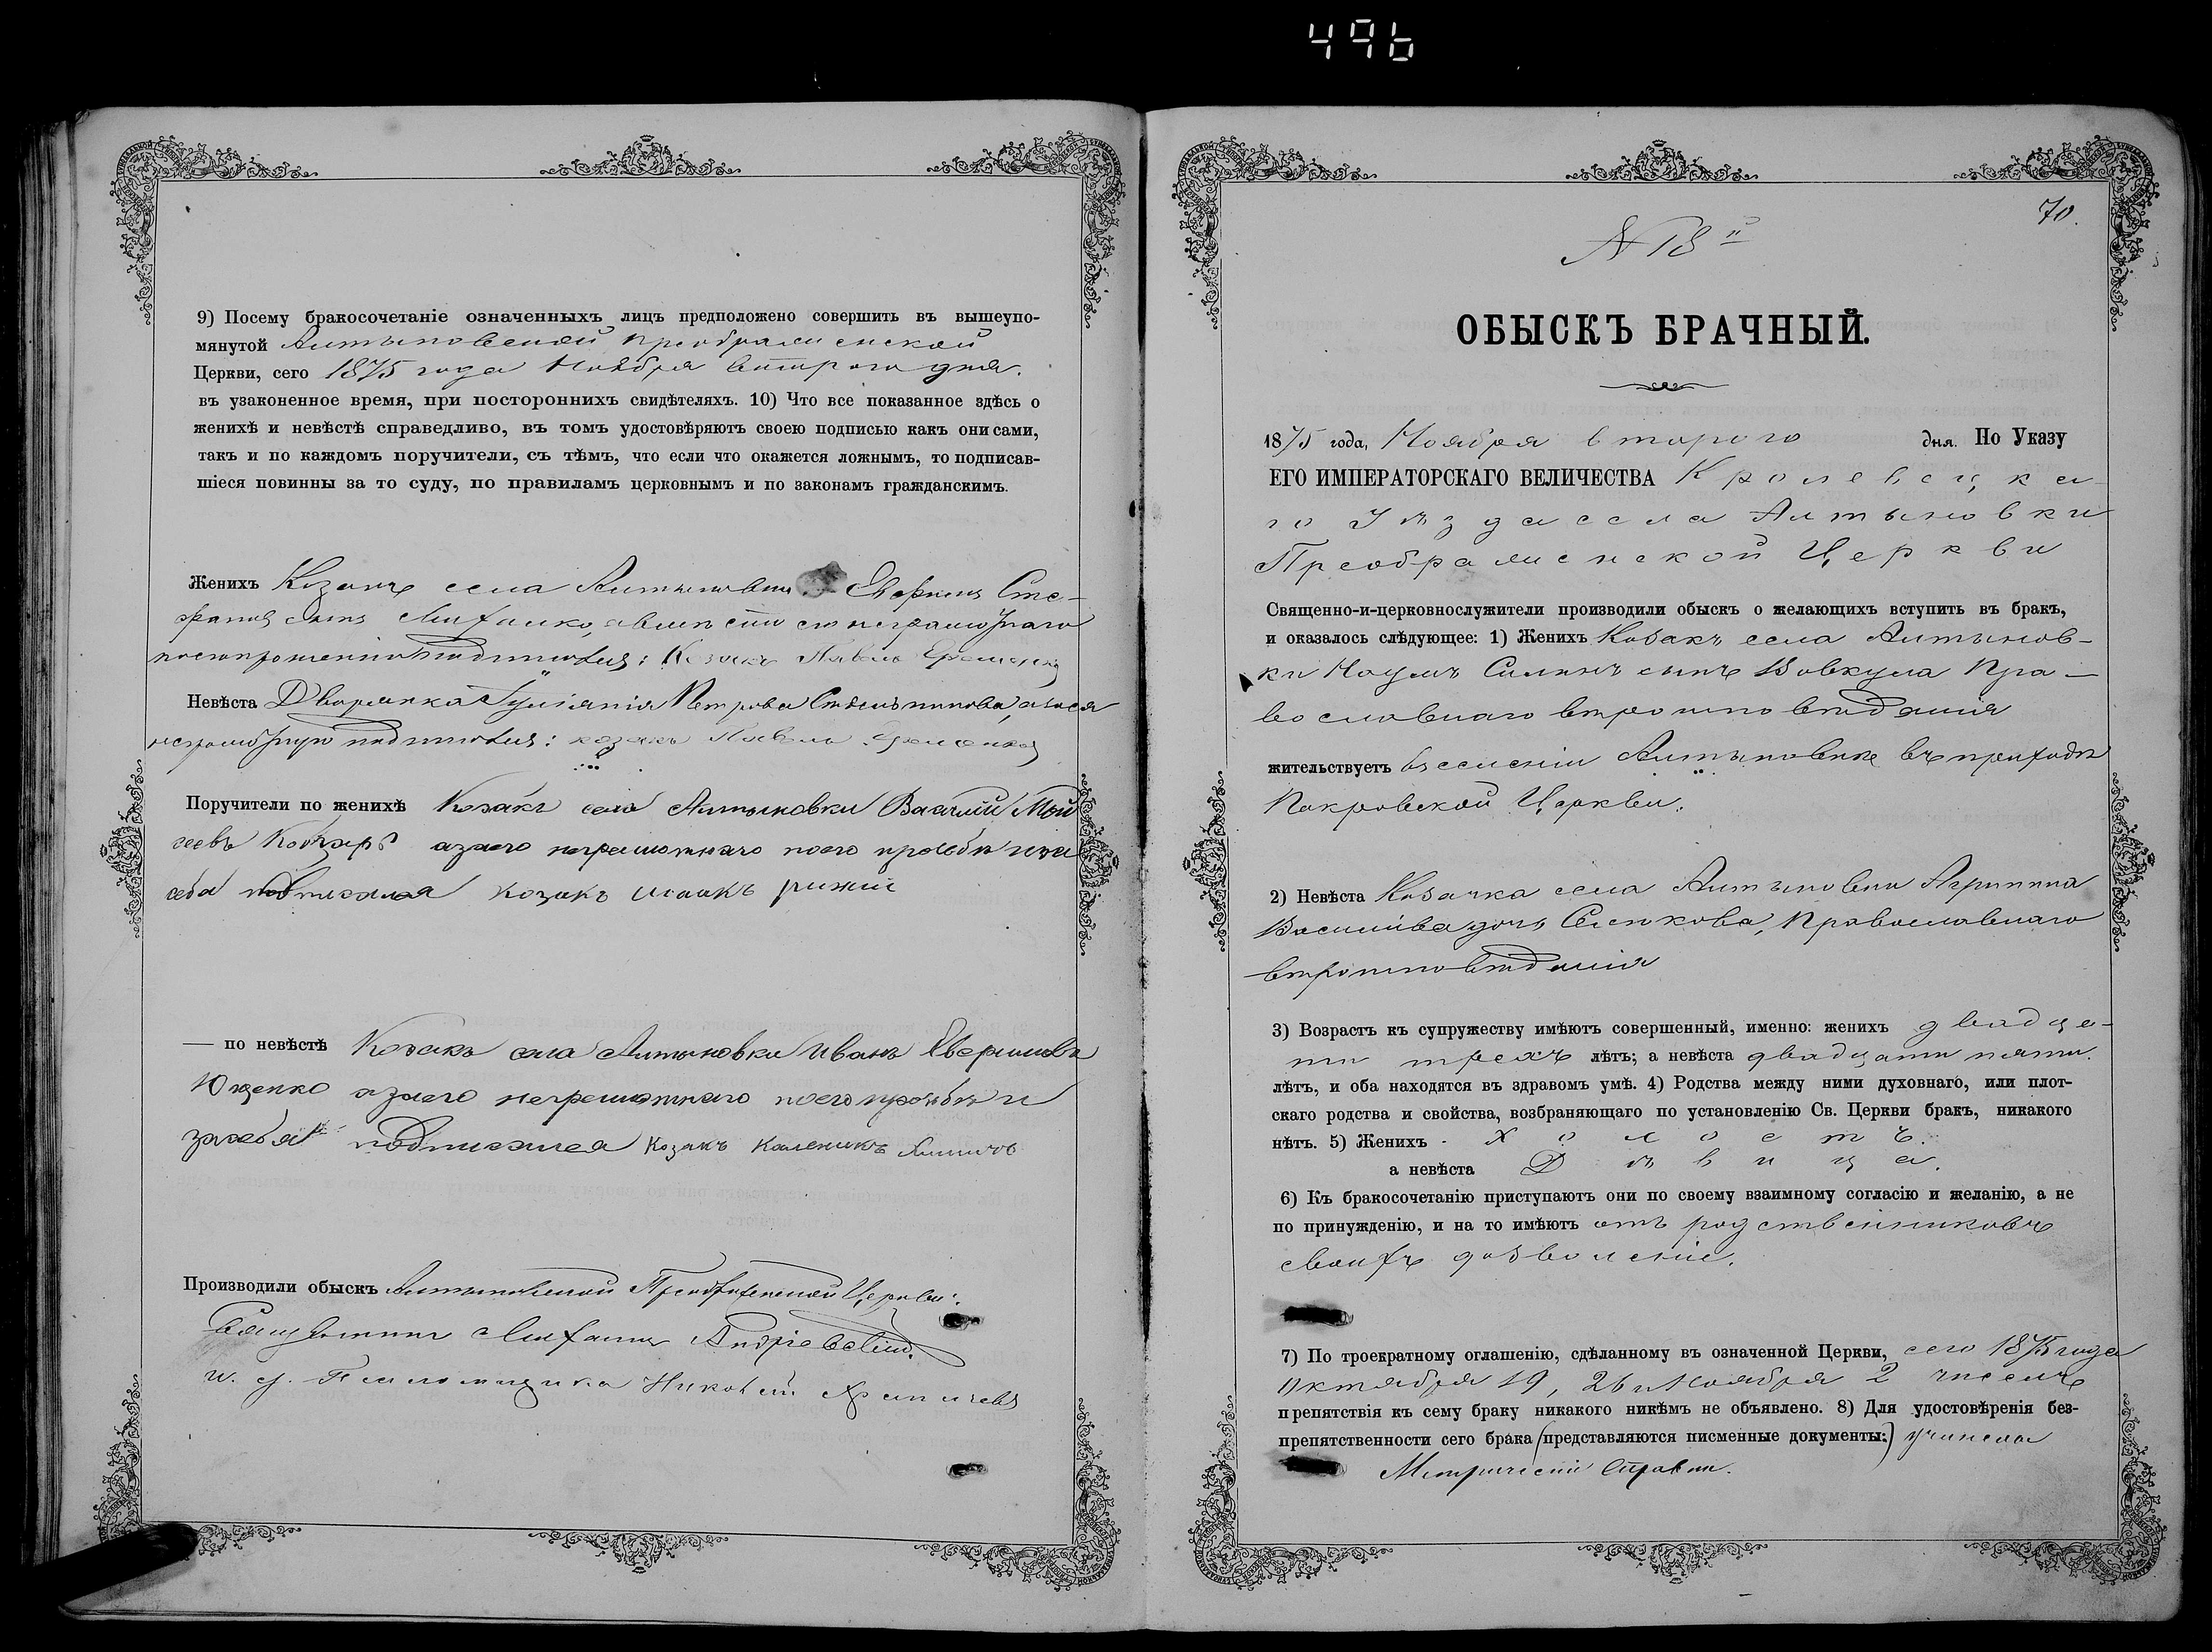 496
9) Посему бракосочетаніе означенныхъ лицъ предположено совершить въ вышеупо-
мянутой Алтыновской Преображенской
Церкви, сего 1875 года Ноября второго дня.
въ узаконенное время, при постороннихъ свидѣтеляхъ. 10) Что все показанное здѣсь о
женихѣ и невѣстѣ справедливо, въ томъ удостовѣряютъ своею подписью какъ они сами,
такъ и по каждомъ поручители, съ тѣмъ, что если что окажется ложнымъ, то подписав-
шіеся повинны за то суду, по правиламъ церковнымъ и по законамъ гражданскимъ.
Женихъ Козакъ села Алтыновки Сте-
фановъ сынъ неграмотнаго
Козакъ Павелъ
Невѣста Дворянка Петрова
неграмотную подписался: козакъ Павелъ
Поручители по женихѣ Козакъ села Алтыновки Василій Мои
сеевъ азаего неграмотнаго поего прозбѣ иза
себя подписался козакъ Исаакъ рижий
— по невѣстѣ Козакъ села Алтыновки Иванъ
Ющенко азаего неграмотнаго поего прозбѣ и
засебя подписался Козакъ Каленикъ
Производили обыскъ Алтыновской Преображенской Церкви:
Священникъ Михаилъ Андріевскій.
и. д. Псаломщика Николай
70.
N 18й
ОБЫСКЪ БРАЧНЫЙ.
1875 года, Ноября второго дня. По Указу
ЕГО ИМПЕРАТОРСКАГО ВЕЛИЧЕСТВА Кролевецка-
го Уѣзда села Алтыновки
Преображенской Церкви
Священно-и-церковнослужители производили обыскъ о желающихъ вступить въ бракъ,
и оказалось слѣдующее: 1) Женихъ Козакъ села Алтынов-
ки Наумъ Силинъ сынъ Вовкула Пра-
вославнаго вѣроисповѣданія
жительствуетъ въ селеніи Алтыновкѣ въ приходѣ
Покровской Церкви.
2) Невѣста Козачка села Алтыновки Агрипина
Василіева дочь Православнаго
вѣроисповѣданія
3) Возрастъ къ супружеству имѣютъ совершенный, именно: женихъ двадца-
ти трехъ лѣтъ; а невѣста двадцати пяти.
лѣтъ, и оба находятся въ здравомъ умѣ. 4) Родства между ними духовнаго, или плот-
скаго родства и свойства, возбраняющаго по установленію Св. Церкви бракъ, никакого
нѣтъ. 5) Женихъ Холостъ.
а невѣста Дѣвица.
6) Къ бракосочетанію приступаютъ они по своему взаимному согласію и желанію, а не
по принужденію, и на то имѣютъ отъ родственниковъ
своихъ дозволеніе.
7) По троекратному оглашенію, сдѣланному въ означенной Церкви, сего 1875 года
Октября 19, 26 и Ноября 2 числъ
препятствія къ сему браку никакого никѣмъ не объявлено. 8) Для удостовѣренія без-
препятственности сего брака (представляются писменные документы:) учинены
Метрическіи Справки.